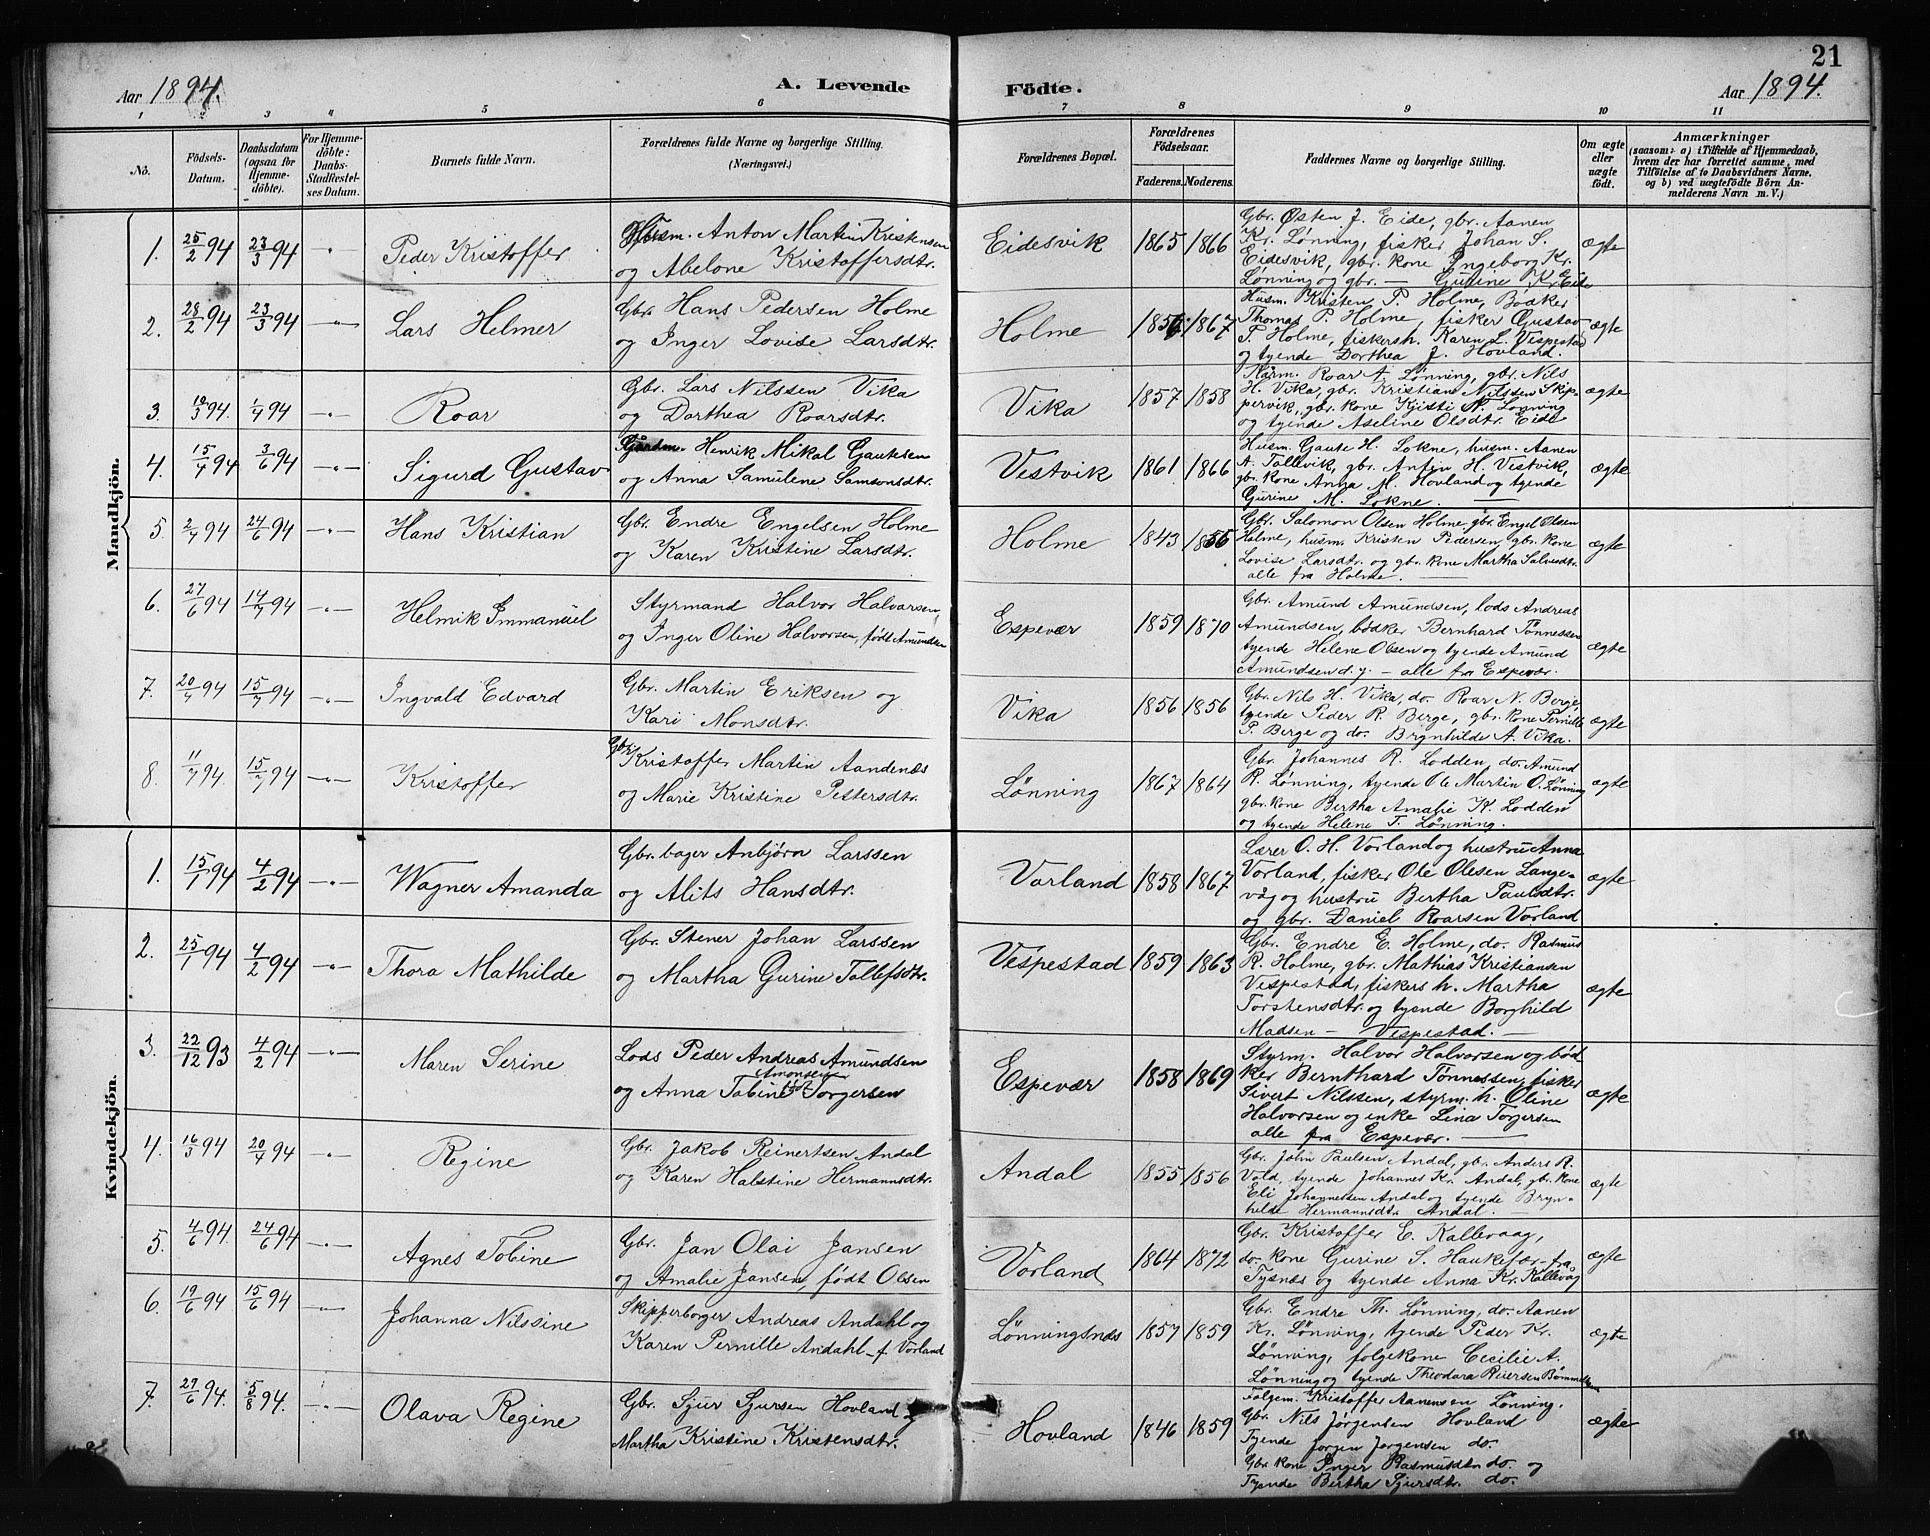 21
Aar 1894. A. Levende Födte. Aar 1894.
1 2 3 4 5 6 7 8 9 10 11
No.
Födsels-
Datum.
Daabsdatum
(ogsaa for
Hjemme-
döbte).
For Hjemme-
döbte:
Daabs-
Stadfæstel-
ses Datum.
Barnets fulde Navn.
Forældrenes fulde Navne og borgerlige Stilling.
(Næringsvei.)
Forældrenes Bopæl.
Forældrenes
Födselsaar.
Faderens. Moderens.
Faddernes Navne og borgerlige Stilling.
Om ægte
eller
uægte
födt.
Anmærkninger
(saasom: a) i Tilfælde af Hjemmedaab,
hvem der har forrettet samme, med
Tilföielse af to Daabsvidners Navne,
og b) ved uægtefödte Börn An-
melderens Navn m. V.)
Mandkjön.
1. 25/2 94 23/3 94 -"- Peder Kristoffer
Husm. Anton Martin Kristensen
og Abelone Kristoffersdtr.
Eidesvik 1865 1866
Gbr. Østen J. Eide, gbr. Aanen
Kr. Lønning, fisker Johan S.
Eidesvik, gbr. kone Ingeborg Kr.
Lønning og gbr. — Gurine Kr. Eide
ægte
2. 28/2 94 23/3 94 -"- Lars Helmer
Gbr. Hans Pedersen Holme
og Inger Lovise Larsdtr.
Holme 1867
Husm. Kristen P. Holme, Bødker
Thomas P. Holme, fisker Gustav
P. Holme, fiskersh. Karen L. Vespestad
og tyende Dorthea J. Hovland.
ægte
3. 94. 1/4 94 -"- Roar
Gbr. Lars Nilssen Vika
og Dorthea Roarsdtr.
Vika 1857 1858
Kårm. Roar A. Lønning, gbr. Nils
H. Vika, gbr. Kristian Nilssen Skip-
pervik, gbr. kone Kjisti N. Lønning
og tyende Aseline Olsdtr. Eide
ægte
4. 15/4 94 3/6 94 -"- Sigurd Gustav
Gårdm. Henrik Mikal Gautesen
og Anna Samuline Samsonsdtr.
Vestvik 1861 1866
Husm. Gaute H. Lokne, husm. Aanen
A. Tollevik, gbr. Anfin H. Vestvik,
gbr. kone Anna M. Hovland og tyende
Gurine M. Lokne.
ægte
5. 94 24/6 94 -"- Hans Kristian
Gbr. Endre Engelsen Holme
og Karen Kristine Larsdtr.
Holme 1843
Gbr. Salomon Olsen Holme, gbr. Engel Olsen
Holme, husm. Kristen Pedersen, gbr. kone
Lovise Larsdtr. og gbr. kone Martha Salvesdtr.
alle fra Holme.
ægte
6. 27/6 94 14/7 94 -"- Helmik Immanuel
Styrmand Halvor Halvorsen
og Inger Oline Halvorsen, født Amundsen
Espevær 1859 1870
Gbr. Amund Amundsen, lods Andreas
Amundsen, bødker Bernhard Tønnessen
tyende Helene Olsen og tyende Amund
Amundsen d. y. — alle fra Espevær.
ægte
7. 94 15/7 94 -"- Ingvald Edvard
Gbr. Martin Eriksen og
Kari Monsdtr.
Vika 1856 1856
Gbr. Nils H. Vika, do. Roar N. Berge,
tyende Peder R. Berge, gbr. kone Pernille
P. Berge og do. Brynhilde A. Vika.
ægte
8. 11/7 94. 15/7 94 -"- Kristoffer
Gbr. Kristoffer Martin Aandenæs
og Marie Kristine Pettersdtr.
Lønning 1867 1864
Gbr. Johannes R. Lodden, do. Amund
R. Lønning, tyende Ole Martin O. Lønning
gbr. kone Bertha Amalie K. Lodden
og tyende Helene T. Lønning.
ægte
Kvindekjön.
1. 15/1 94 4/2 94 -"- Wagner Amanda
Gbr. bager Anbjörn Larssen
og Alits Hansdtr.
Vorland 1858 1867
Lærer O. H. Vorland og hustru Anna
Vorland, fisker Ole Olesen Lange-
våg og hustru Bertha Paulsdtr.
og gbr. Daniel Roarsen Vorland
ægte
2. 25/1 94 4/2 94 -"- Thora Mathilde
Gbr. Stener Johan Larssen
og Martha Gurine Tollefsdtr.
Vespestad 1859 1863
Gbr. Endre E. Holme, do. Rasmus
R. Holme, gbr. Mathias Kristiansen
Vespestad, fiskers h. Martha
Torstensdtr. og tyende Borghild
Madsen — Vespestad.
ægte
3. 22/12 93 4/2 94 -"- Maren Serine
Lods Peder Andreas Amundsen
og Anna Tobine Amonsen født Torgersen
Espevær 1858 1869
Styrm. Halvor Halvorsen og bød
ker Bernthard Tønnessen, fisker
Sivert Nilssen, styrm. h. Oline
Halvorsen og enke Lina Torgersen
alle fra Espevær.
ægte
4. 16/3 94 94 -"- Regine
Gbr. Jakob Reinertsen Andal
og Karen Halstine Hermannsdtr.
Andal 1855 1856
Gbr. John Paulsen Andal, gbr. Anders R.
Vold, tyende Johannes Kr. Andal, gbr. kone
Eli Johannessen Andal og tyende Bryn-
hilde Hermannsdtr. Andal.
ægte
5. 4/6 94. 24/6 94 -"- Agnes Tobine
Gbr. Jan Olai Jansen
og Amalie Jansen, født Olsen
Vorland 1864 1872
Gbr. Kristoffer E. Kallevaag,
do. kone Gurine S. Haukefær fra
Tysnæs og tyende Anna Kr. Kallevåg
ægte
6. 19/6 94 15/6 94 -"- Johanna Nilssine
Skipperborger Andreas Andahl og
Karen Pernille Andahl f. Vorland
Lønningsnæs 1857 1859
Gbr. Endre Th. Lønning, do. Aanen
Kr. Lønning, tyende Peder Kr.
Lønning, folgekone Cecilie A.
Lønning og tyende Theodora Reiersen Bømmelhavn
ægte
7. 29/6 94. 5/8 94. -"- Olava Regine
Gbr. Sjur Sjursen Hovland og
Martha Kristine Kristensdtr.
Hovland 1846 1859
Følgem. Kristoffer Aanensen Lønning.
Gbr. Nils Jørgensen Hovland
Tyende Jørgen Jørgensen do.
Gbr. kone Inger Rasmusdtr. do. og
Tyende Bertha Sjursdtr. do.
ægte